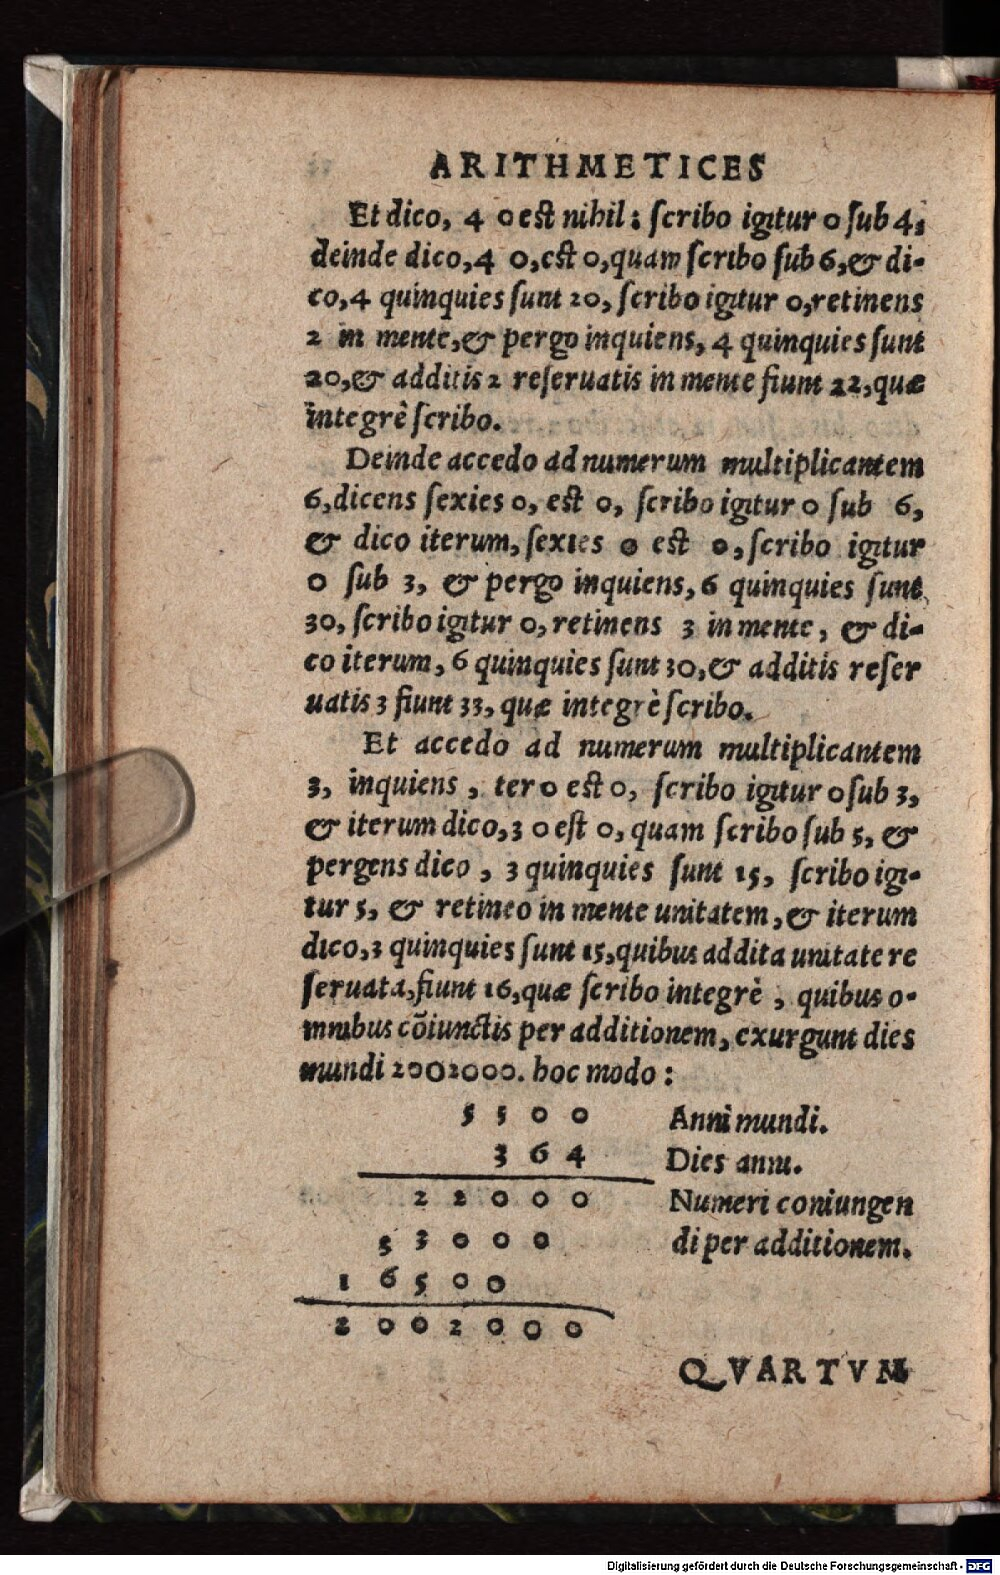 ARITHMETICES
Et dico, 4 0 est nihil: ſcribo igitur 0 ſub 4,
deinde dico, 4 0, est 0, quam ſcribo ſub 6, & di-
co, 4 quinquies ſunt 20, ſcribo igitur 0, retinens
2 in mente, & pergo inquiens, 4 quinquies ſunt
20, & additis 2 reſeruatis in mente fiunt 22, quæ
integrè ſcribo.
Deinde accedo ad numerum multiplicantem
6, dicens ſexies 0, est 0, ſcribo igitur 0 ſub 6,
& dico iterum, ſexies 0 est 0, ſcribo igitur
0 ſub 3, & pergo inquiens, 6 quinquies ſunt
30, ſcribo igitur 0, retinens 3 in mente, & di-
co iterum, 6 quinquies ſunt 30, & additis reſer
uatis 3 fiunt 33, quæ integrè ſcribo.
Et accedo ad numerum multiplicantem
3, inquiens, ter 0 est 0, ſcribo igitur 0 ſub 3,
& iterum dico, 3 0 eſt 0, quam ſcribo ſub 5, &
pergens dico, 3 quinquies ſunt 15, ſcribo igi-
tur 5, & retineo in mente unitatem, & iterum
dico, 3 quinquies ſunt 15, quibus addita unitate re
ſeruata, fiunt 16, quæ ſcribo integrè, quibus o-
mnibus cõiunctis per additionem, exurgunt dies
mundi 2002000. hoc modo:
5 5 0 0 Anni mundi.
3 6 4 Dies anni.
2 2 0 0 0 Numeri coniungen
3 3 0 0 0 di per additionem.
1 6 5 0 0
2 0 0 2 0 0 0
QVARTVM
Digitalisierung gefördert durch die Deutsche Forschungsgemeinschaft - DFG